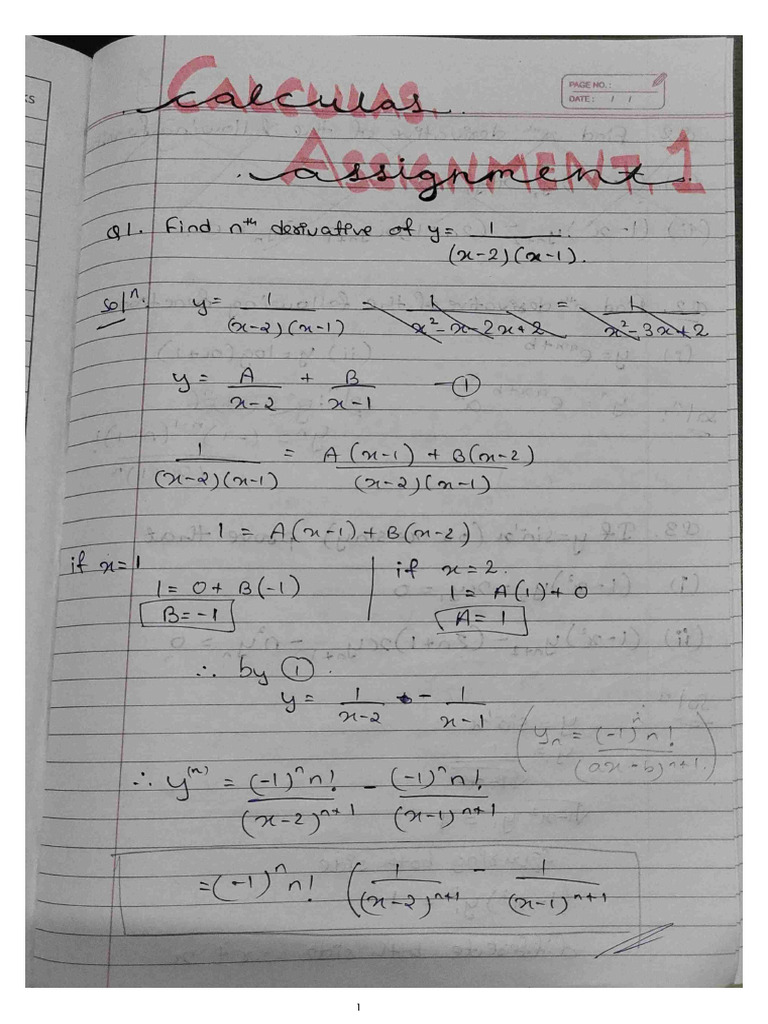 CALCULAS.
calculas.
PAGE NO.:
DATE: / /
ASSIGNMENT. 1
assignment.
Q1. Find nᵗʰ derivative of y = 1/(x-2)(x-1).
Solⁿ: y = 1/(x-2)(x-1) = 1/x²-x-2x+2 = 1/x²-3x+2
y = A/x-2 + B/x-1 — ①
1/(x-2)(x-1) = A(x-1) + B(x-2)/(x-2)(x-1)
1 = A(x-1) + B(x-2)
if x=1
1 = 0 + B(-1)
B = -1
if x = 2.
1 = A(1) + 0
A = 1
∴ by ①.
y = 1/x-2 - 1/x-1
(yₙ = (-1)ⁿ n!/(ax-b)ⁿ⁺¹.)
∴ y⁽ⁿ⁾ = (-1)ⁿ n!/(x-2)ⁿ⁺¹ - (-1)ⁿ n!/(x-1)ⁿ⁺¹
= (-1)ⁿ n! (1/(x-2)ⁿ⁺¹ - 1/(x-1)ⁿ⁺¹
1